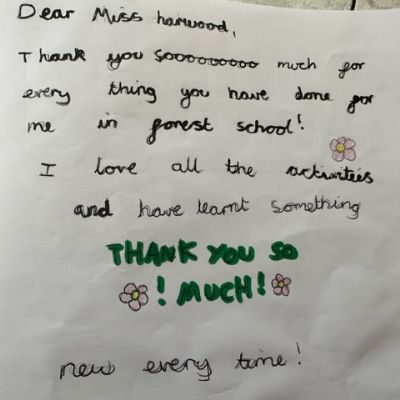 Dear Miss harwood,
Thank you Soooooooooo much for
every thing you have done for
me in forest school!
I love all the activitees
and have learnt something
THANK YOU SO
! MUCH!
new every time!